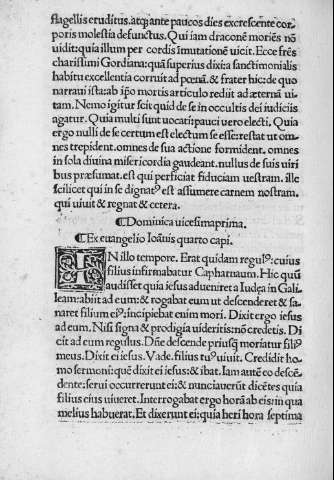 flagellis eruditus. atq; ante paucos dies excrescente cor-
poris molestia defunctus. Qui iam draconē moriēs nō
uidit: quia illum per cordis īmutationē uicit. Ecce frēs
charissimi Gordiana: quā superius dixi: a sanctimonialis
habitu excellentia corruit ad pœnā. & frater hic: de quo
narraui ista: ab ipō mortis articulo rediit ad æternā ui-
tam. Nemo igitur scit quid de se in occultis dei iudiciis
agatur. Quia multi sunt uocati: pauci uero electi. Quia
ergo nulli de se certum est electum se esse: restat ut om-
nes trepident. omnes de sua actione formident. omnes
in sola diuina misericordia gaudeant. nullus de suis uiri
bus præsumat. est qui perficiat fiduciam uestram. ille
scilicet qui in se dignatꝰ est assumere carnem nostram.
qui uiuit & regnat & cetera.
¶Dominica uicesimaprima.
¶Ex euangelio Ioānis quarto capi.
IN illo tempore. Erat quidam regulꝰ: cuius
filius infirmabatur Capharnaum. Hic quū
audisset quia iesus adueniret a Iudęa in Gali
leam: abiit ad eum: & rogabat eum ut descenderet & sa-
naret filium eiꝰ: incipiebat enim mori. Dixit ergo iesus
ad eum. Nisi signa & prodigia uideritis: nō credetis. Di
cit ad eum regulus. Dñe descende priusq̃ moriatur filiꝰ
meus. Dixit ei iesus. Vade. filius tuꝰ uiuit. Credidit ho-
mo sermoni: quē dixit ei iesus: & ibat. Iam autē eo descē-
dente: serui occurrerunt ei: & nunciauerūt dicētes quia
filius eius uiueret. Interrogabat ergo horā ab eis: in qua
melius habuerat. Et dixerunt ei: quia heri hora septima